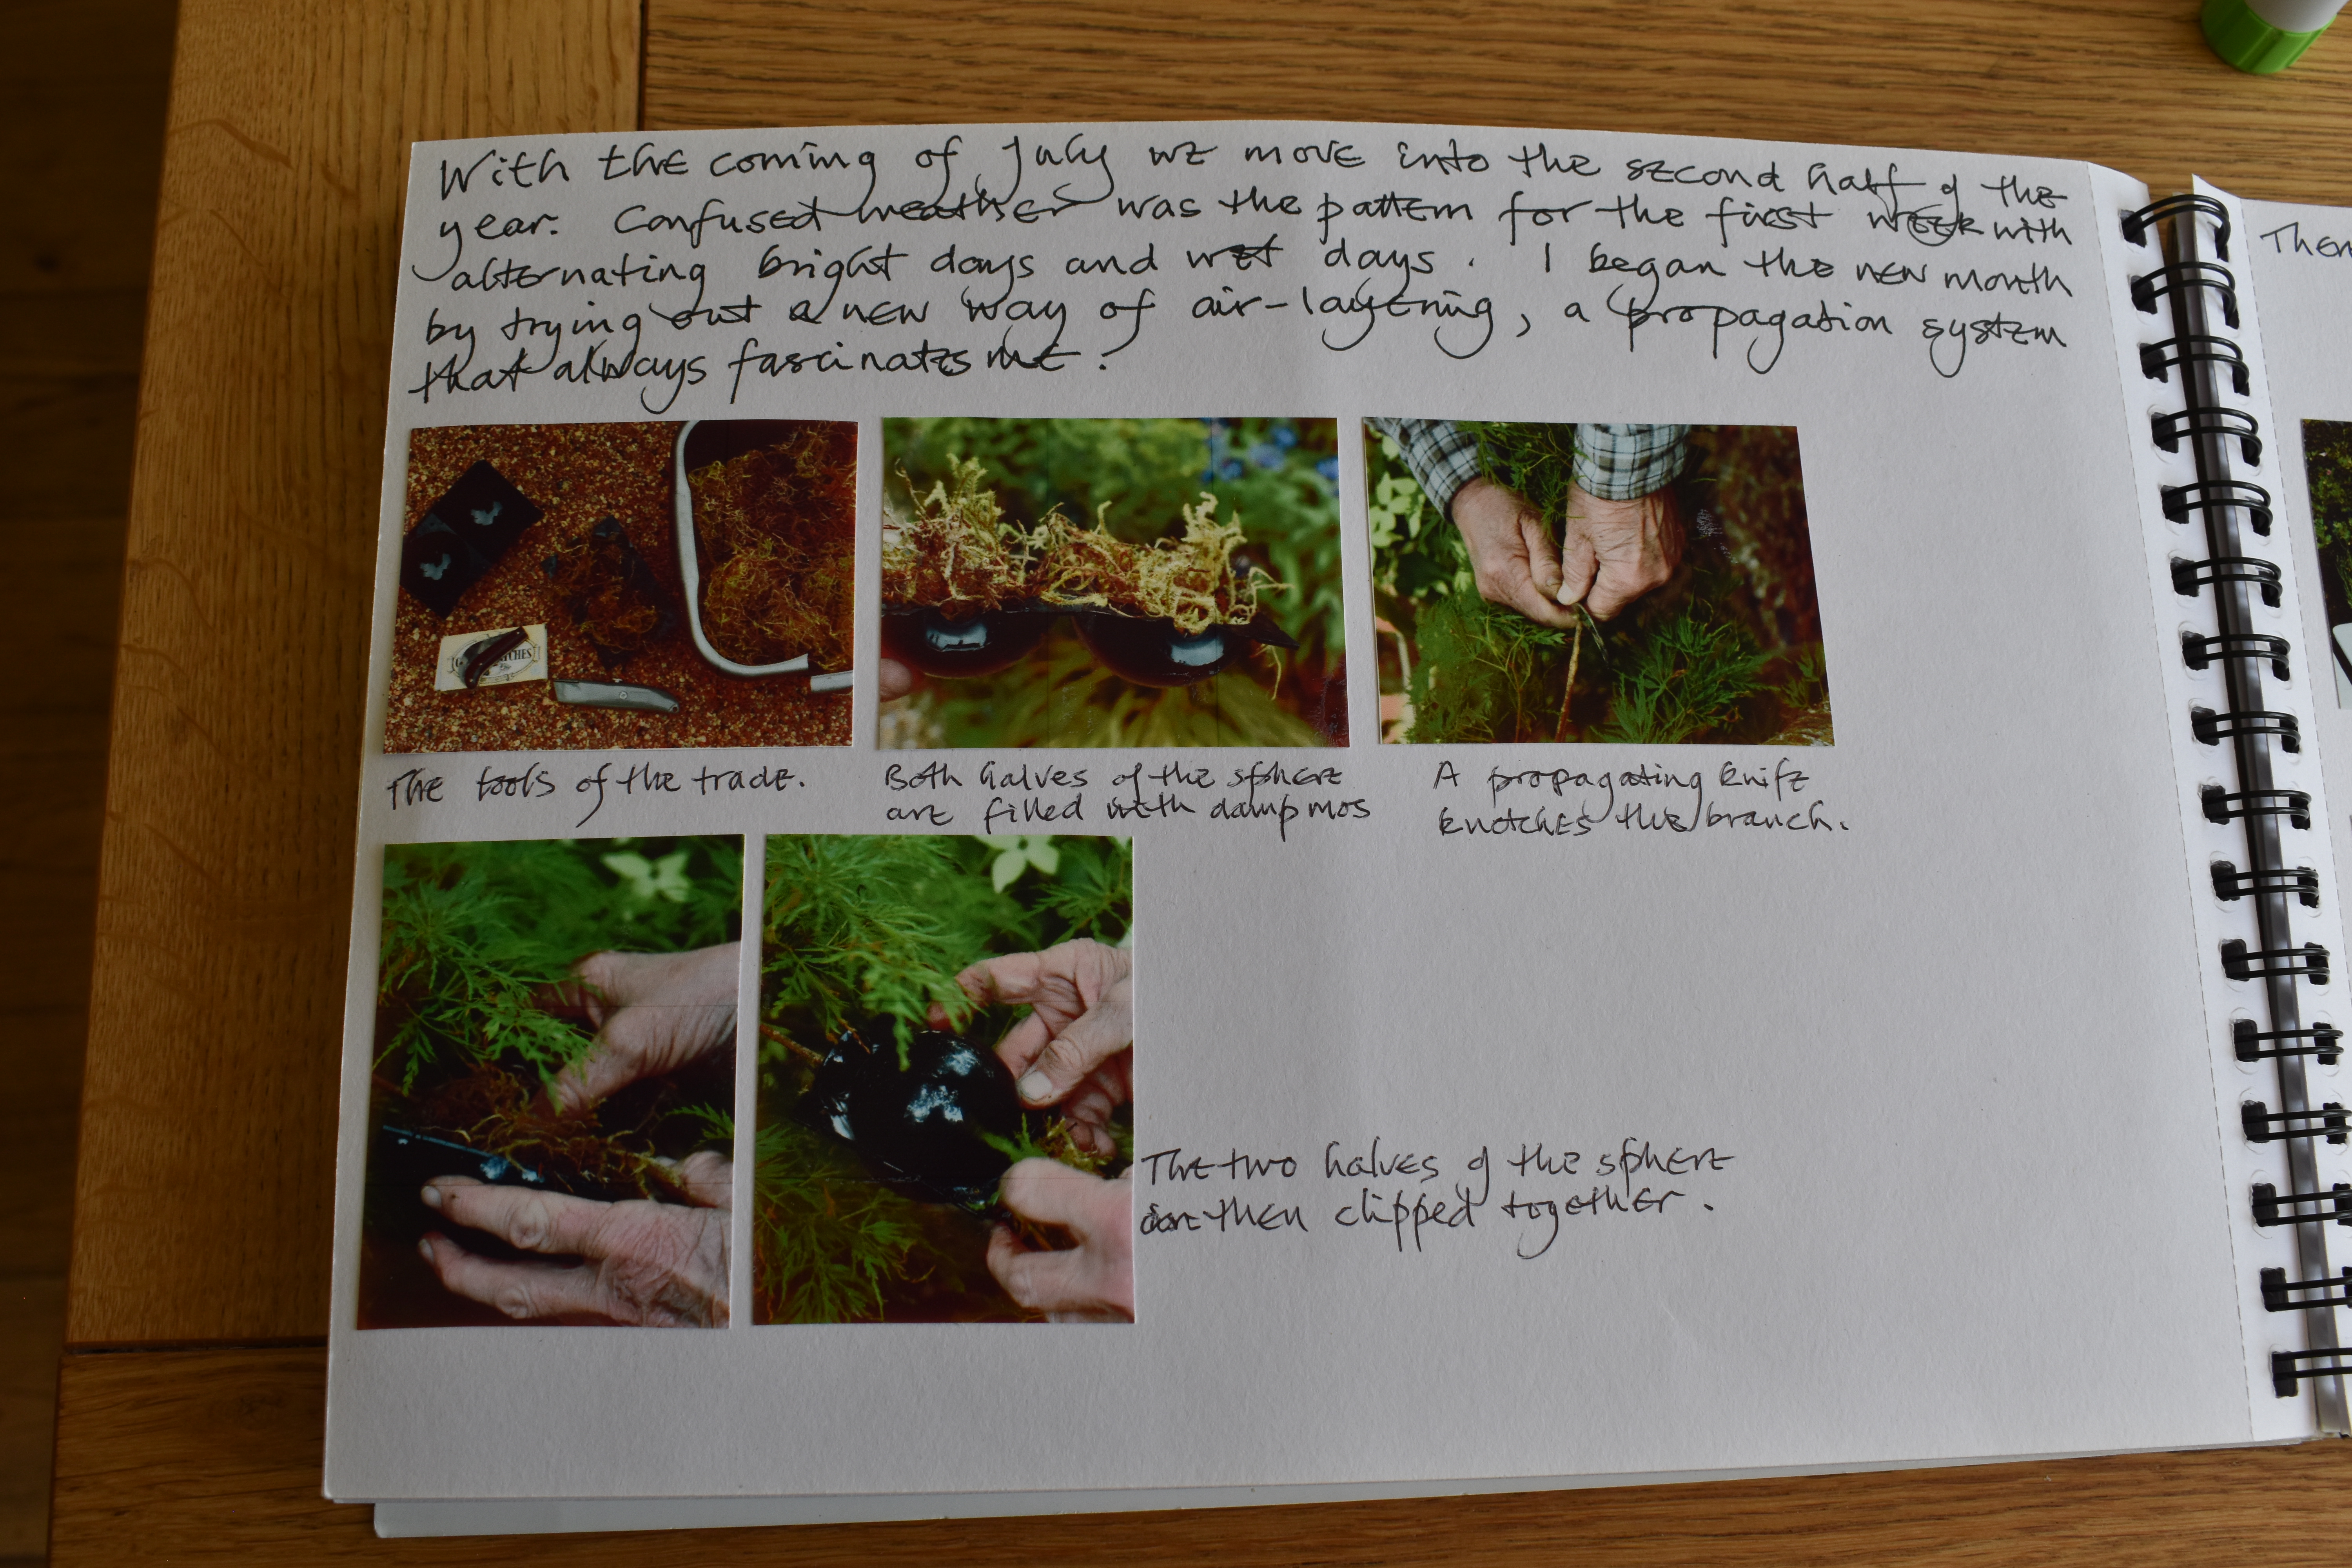 With the coming of July we move into the second half of the
year. Confused weather was the pattern for the first week with
alternating bright days and wet days. I began the new month
by trying out a new way of air-layering, a propagation system
that always fascinates me.
The tools of the trade.
Both halves of the sphere
are filled with damp mos
A propagating knife
knotches the branch.
The two halves of the sphere
are then clipped together.
Then